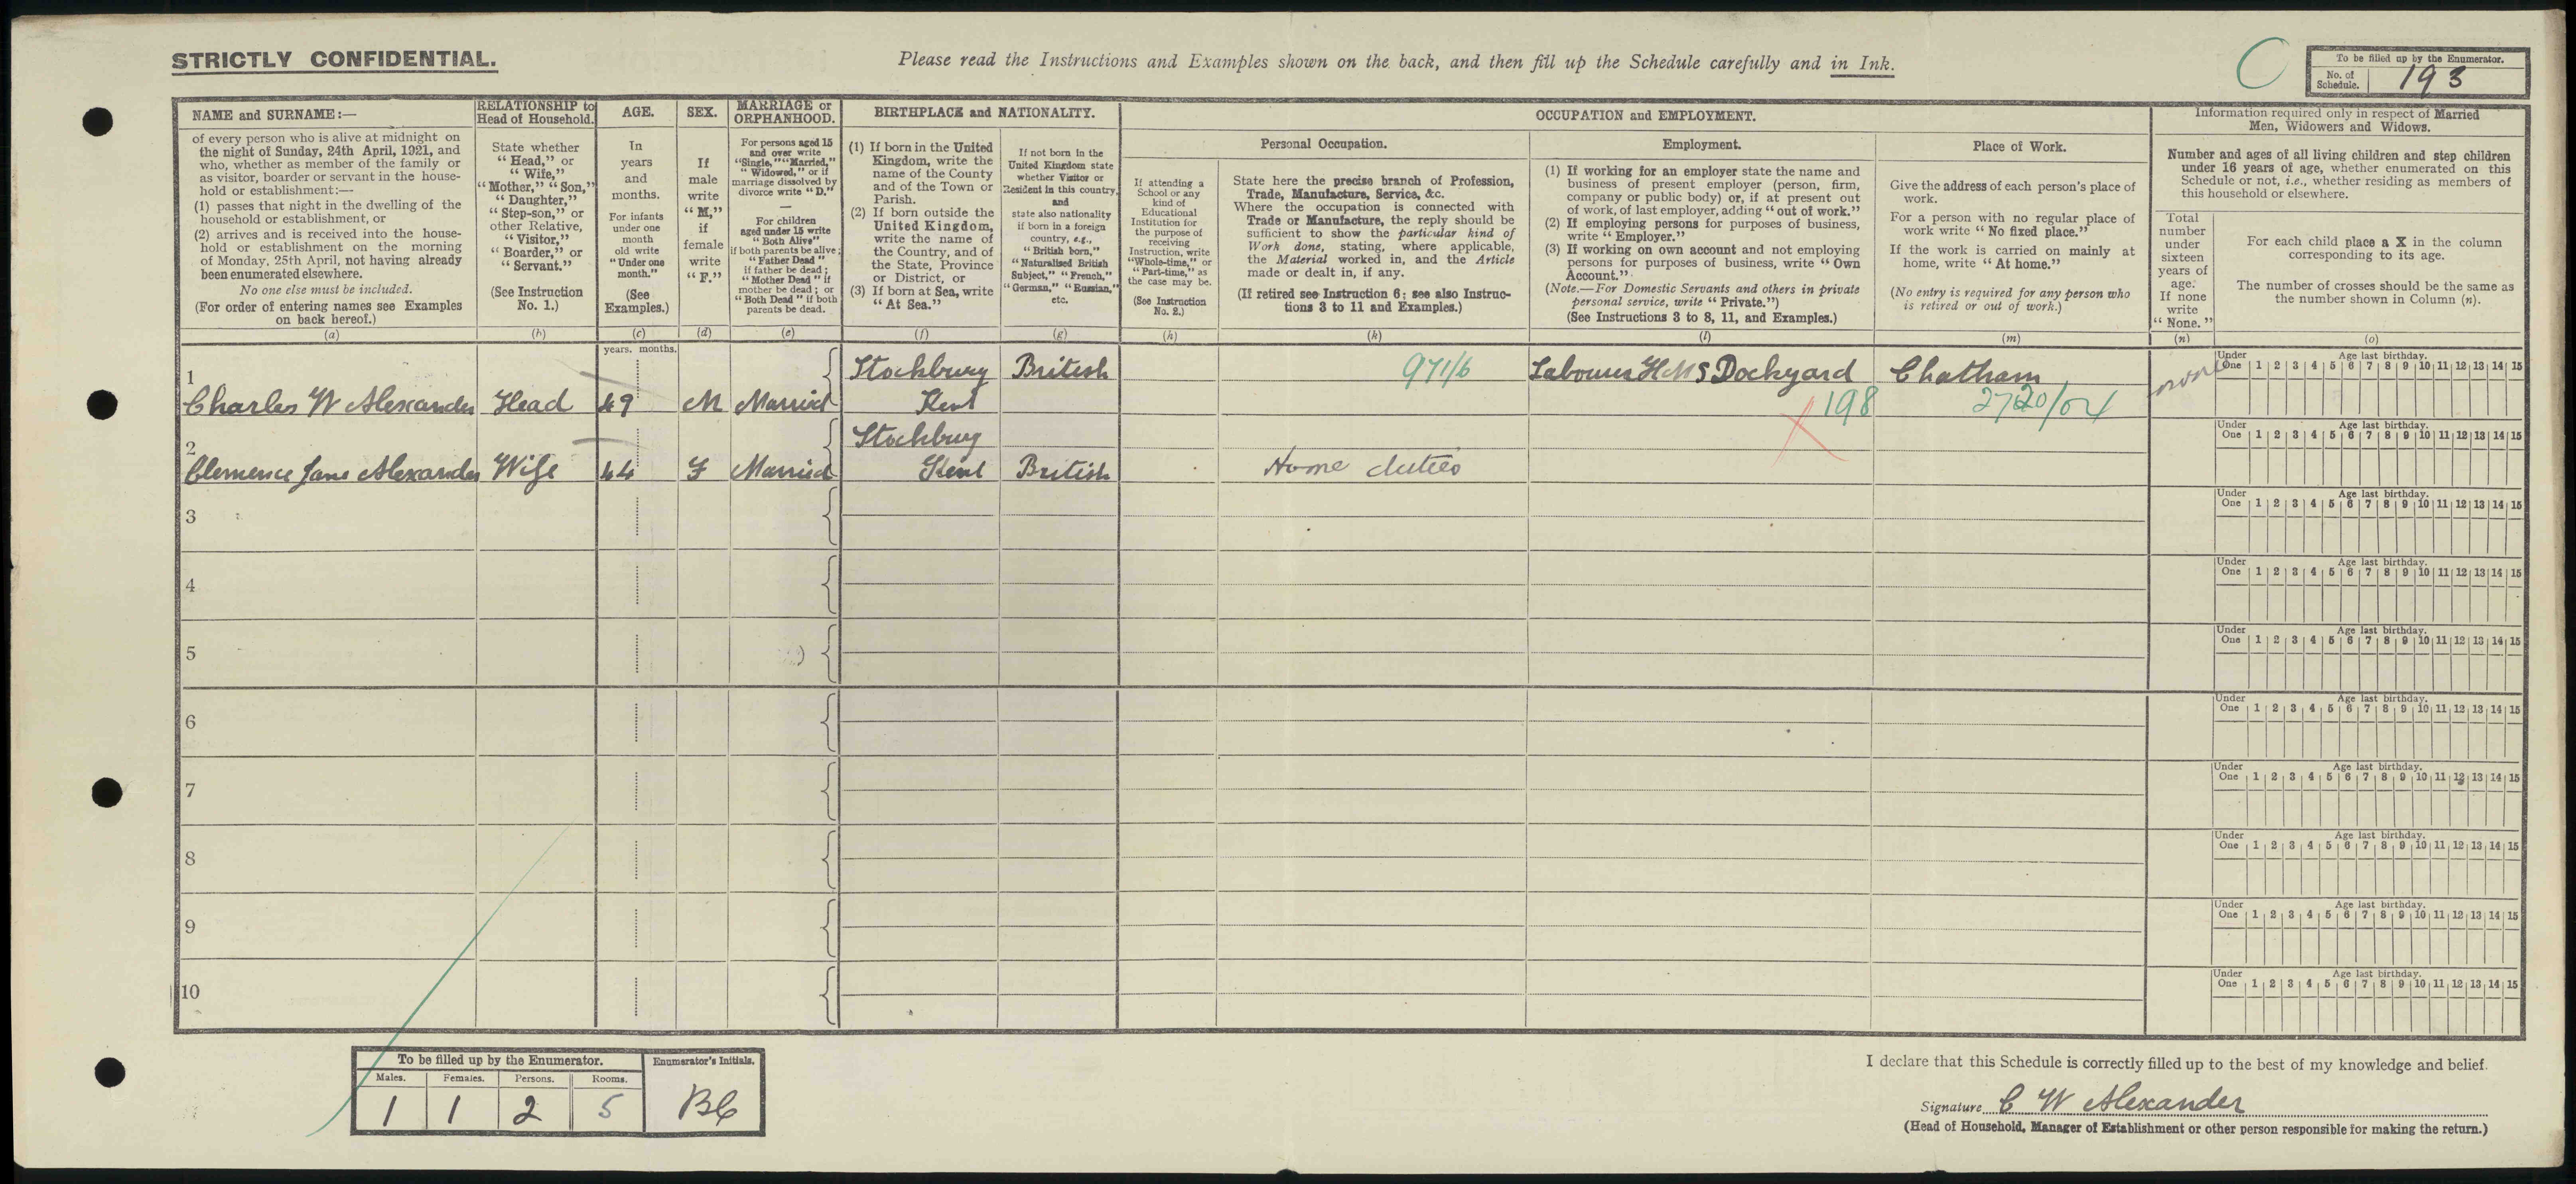 STRICTLY CONFIDENTIAL.
Please read the Instructions and Examples shown on the back, and then fill up the Schedule carefully and in Ink.
C
To be filled up by the Enumerator.
No. of Schedule. 193
NAME and SURNAME:—
of every person who is alive at midnight on
the night of Sunday, 24th April, 1921, and
who, whether as member of the family or
as visitor, boarder or servant in the house-
hold or establishment:—
(1) passes that night in the dwelling of the
household or establishment, or
(2) arrives and is received into the house-
hold or establishment on the morning
of Monday, 25th April, not having already
been enumerated elsewhere.
No one else must be included.
(For order of entering names see Examples
on back hereof.)
(a)
RELATIONSHIP to
Head of Household.
State whether
"Head," or
"Wife,"
"Mother," "Son,"
"Daughter,"
"Step-son," or
other Relative,
"Visitor,"
"Boarder," or
"Servant."
(See Instruction
No. 1.)
(b)
AGE.
In
years
and
months.
For infants
under one
month
old write
"Under one
month."
(See
Examples.)
(c)
SEX.
If
male
write
"M,"
if
female
write
"F."
(d)
MARRIAGE or
ORPHANHOOD.
For persons aged 15
and over write
"Single," "Married,"
"Widowed," or if
marriage dissolved by
divorce write "D."
—
For children
aged under 15 write
"Both Alive"
if both parents be alive;
"Father Dead"
if father be dead;
"Mother Dead" if
mother be dead; or
"Both Dead" if both
parents be dead.
(e)
BIRTHPLACE and NATIONALITY.
(1) If born in the United
Kingdom, write the
name of the County
and of the Town or
Parish.
(2) If born outside the
United Kingdom,
write the name of
the Country, and of
the State, Province
or District, or
(3) If born at Sea, write
"At Sea."
(f)
If not born in the
United Kingdom state
whether Visitor or
Resident in this country,
and
state also nationality
if born in a foreign
country, e.g.,
"British born,"
"Naturalised British
Subject," "French,"
"German," "Russian,"
etc.
(g)
OCCUPATION and EMPLOYMENT.
Personal Occupation.
If attending a
School or any
kind of
Educational
Institution for
the purpose of
receiving
Instruction, write
"Whole-time," or
"Part-time," as
the case may be.
(See Instruction
No. 2.)
(h)
State here the precise branch of Profession,
Trade, Manufacture, Service, &c.
Where the occupation is connected with
Trade or Manufacture, the reply should be
sufficient to show the particular kind of
Work done, stating, where applicable,
the Material worked in, and the Article
made or dealt in, if any.
(If retired see Instruction 6; see also Instruc-
tions 3 to 11 and Examples.)
(k)
Employment.
(1) If working for an employer state the name and
business of present employer (person, firm,
company or public body) or, if at present out
of work, of last employer, adding "out of work."
(2) If employing persons for purposes of business,
write "Employer."
(3) If working on own account and not employing
persons for purposes of business, write "Own
Account."
(Note.—For Domestic Servants and others in private
personal service, write "Private.")
(See Instructions 3 to 8, 11, and Examples.)
(l)
Place of Work.
Give the address of each person's place of
work.
For a person with no regular place of
work write "No fixed place."
If the work is carried on mainly at
home, write "At home."
(No entry is required for any person who
is retired or out of work.)
(m)
Information required only in respect of Married
Men, Widowers and Widows.
Number and ages of all living children and step children
under 16 years of age, whether enumerated on this
Schedule or not, i.e., whether residing as members of
this household or elsewhere.
Total
number
under
sixteen
years of
age.
If none
write
"None."
(n)
For each child place a X in the column
corresponding to its age.
The number of crosses should be the same as
the number shown in Column (n).
(o)
years. months.
1 Stockbury British 971/6 Labourer HMS Dockyard Chatham none
Charles W Alexander Head 49 M Married Kent 198
Under One Age last birthday. 1 2 3 4 5 6 7 8 9 10 11 12 13 14 15
2 Stockbury
Clemence Jane Alexander Wife 44 F Married Kent British Home duties
Under One Age last birthday. 1 2 3 4 5 6 7 8 9 10 11 12 13 14 15
3 Under One Age last birthday. 1 2 3 4 5 6 7 8 9 10 11 12 13 14 15
4 Under One Age last birthday. 1 2 3 4 5 6 7 8 9 10 11 12 13 14 15
5 Under One Age last birthday. 1 2 3 4 5 6 7 8 9 10 11 12 13 14 15
6 Under One Age last birthday. 1 2 3 4 5 6 7 8 9 10 11 12 13 14 15
7 Under One Age last birthday. 1 2 3 4 5 6 7 8 9 10 11 12 13 14 15
8 Under One Age last birthday. 1 2 3 4 5 6 7 8 9 10 11 12 13 14 15
9 Under One Age last birthday. 1 2 3 4 5 6 7 8 9 10 11 12 13 14 15
10 Under One Age last birthday. 1 2 3 4 5 6 7 8 9 10 11 12 13 14 15
To be filled up by the Enumerator. Enumerator's Initials.
Males. Females. Persons. Rooms.
1 1 2 5 BC
I declare that this Schedule is correctly filled up to the best of my knowledge and belief.
Signature C W Alexander
(Head of Household, Manager of Establishment or other person responsible for making the return.)